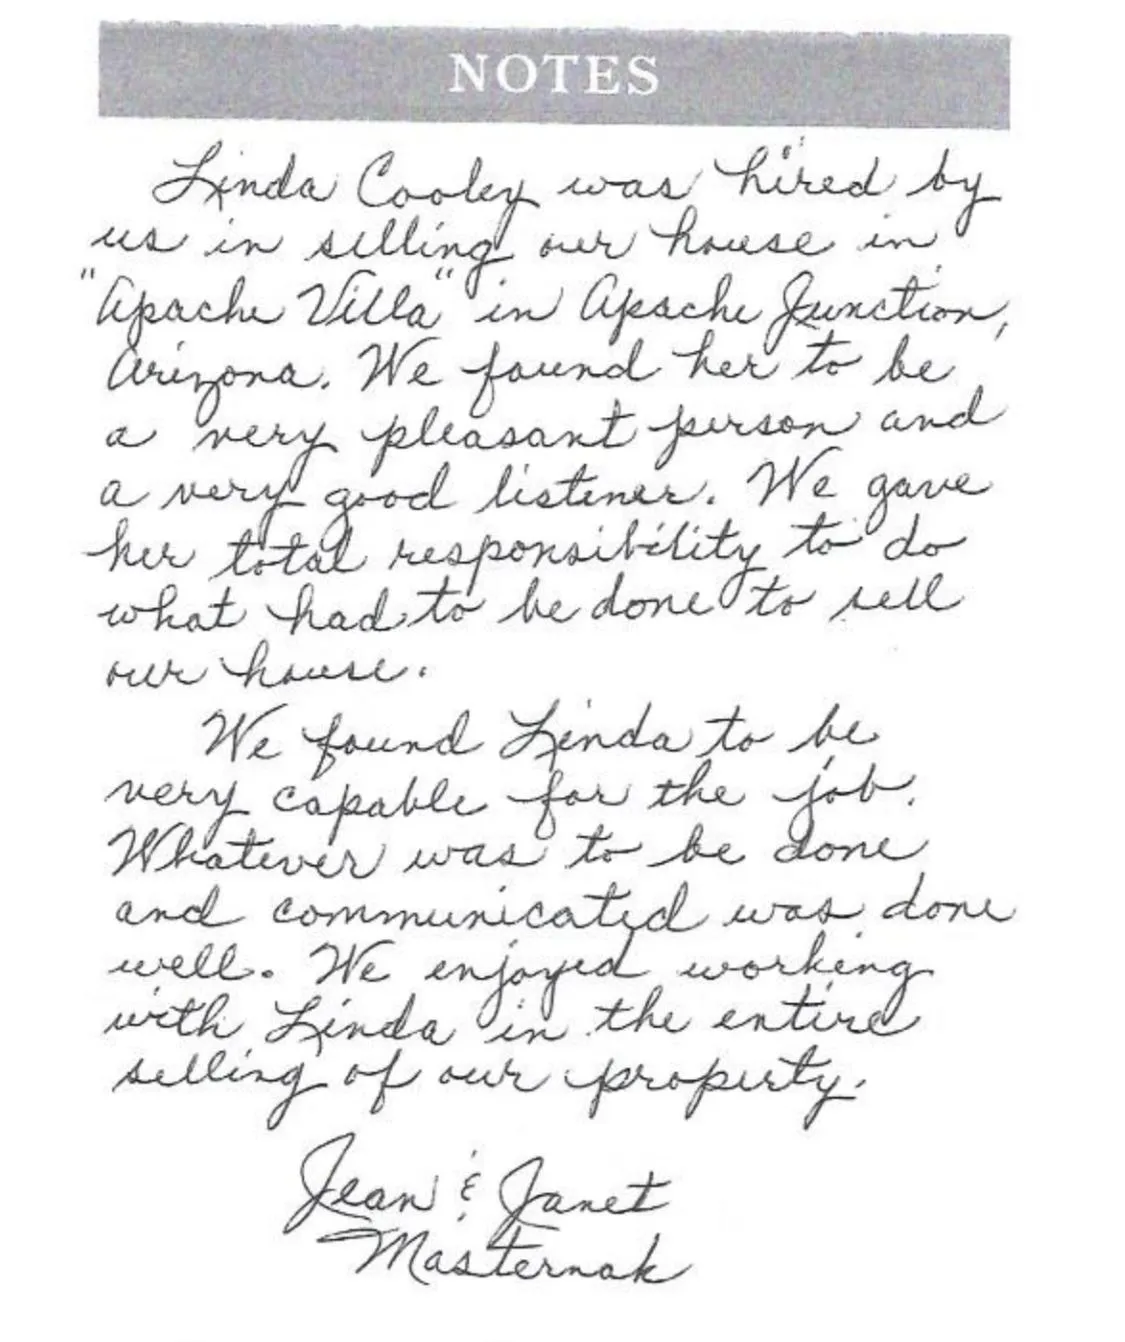 NOTES
Linda Cooley was hired by
us in selling our house in
"Apache Villa" in Apache Junction,
Arizona. We found her to be
a very pleasant person and
a very good listener. We gave
her total responsibility to do
what had to be done to sell
our house.
We found Linda to be
very capable for the job.
Whatever was to be done
and communicated was done
well. We enjoyed working
with Linda in the entire
selling of our property.
Jean & Janet
Masternak